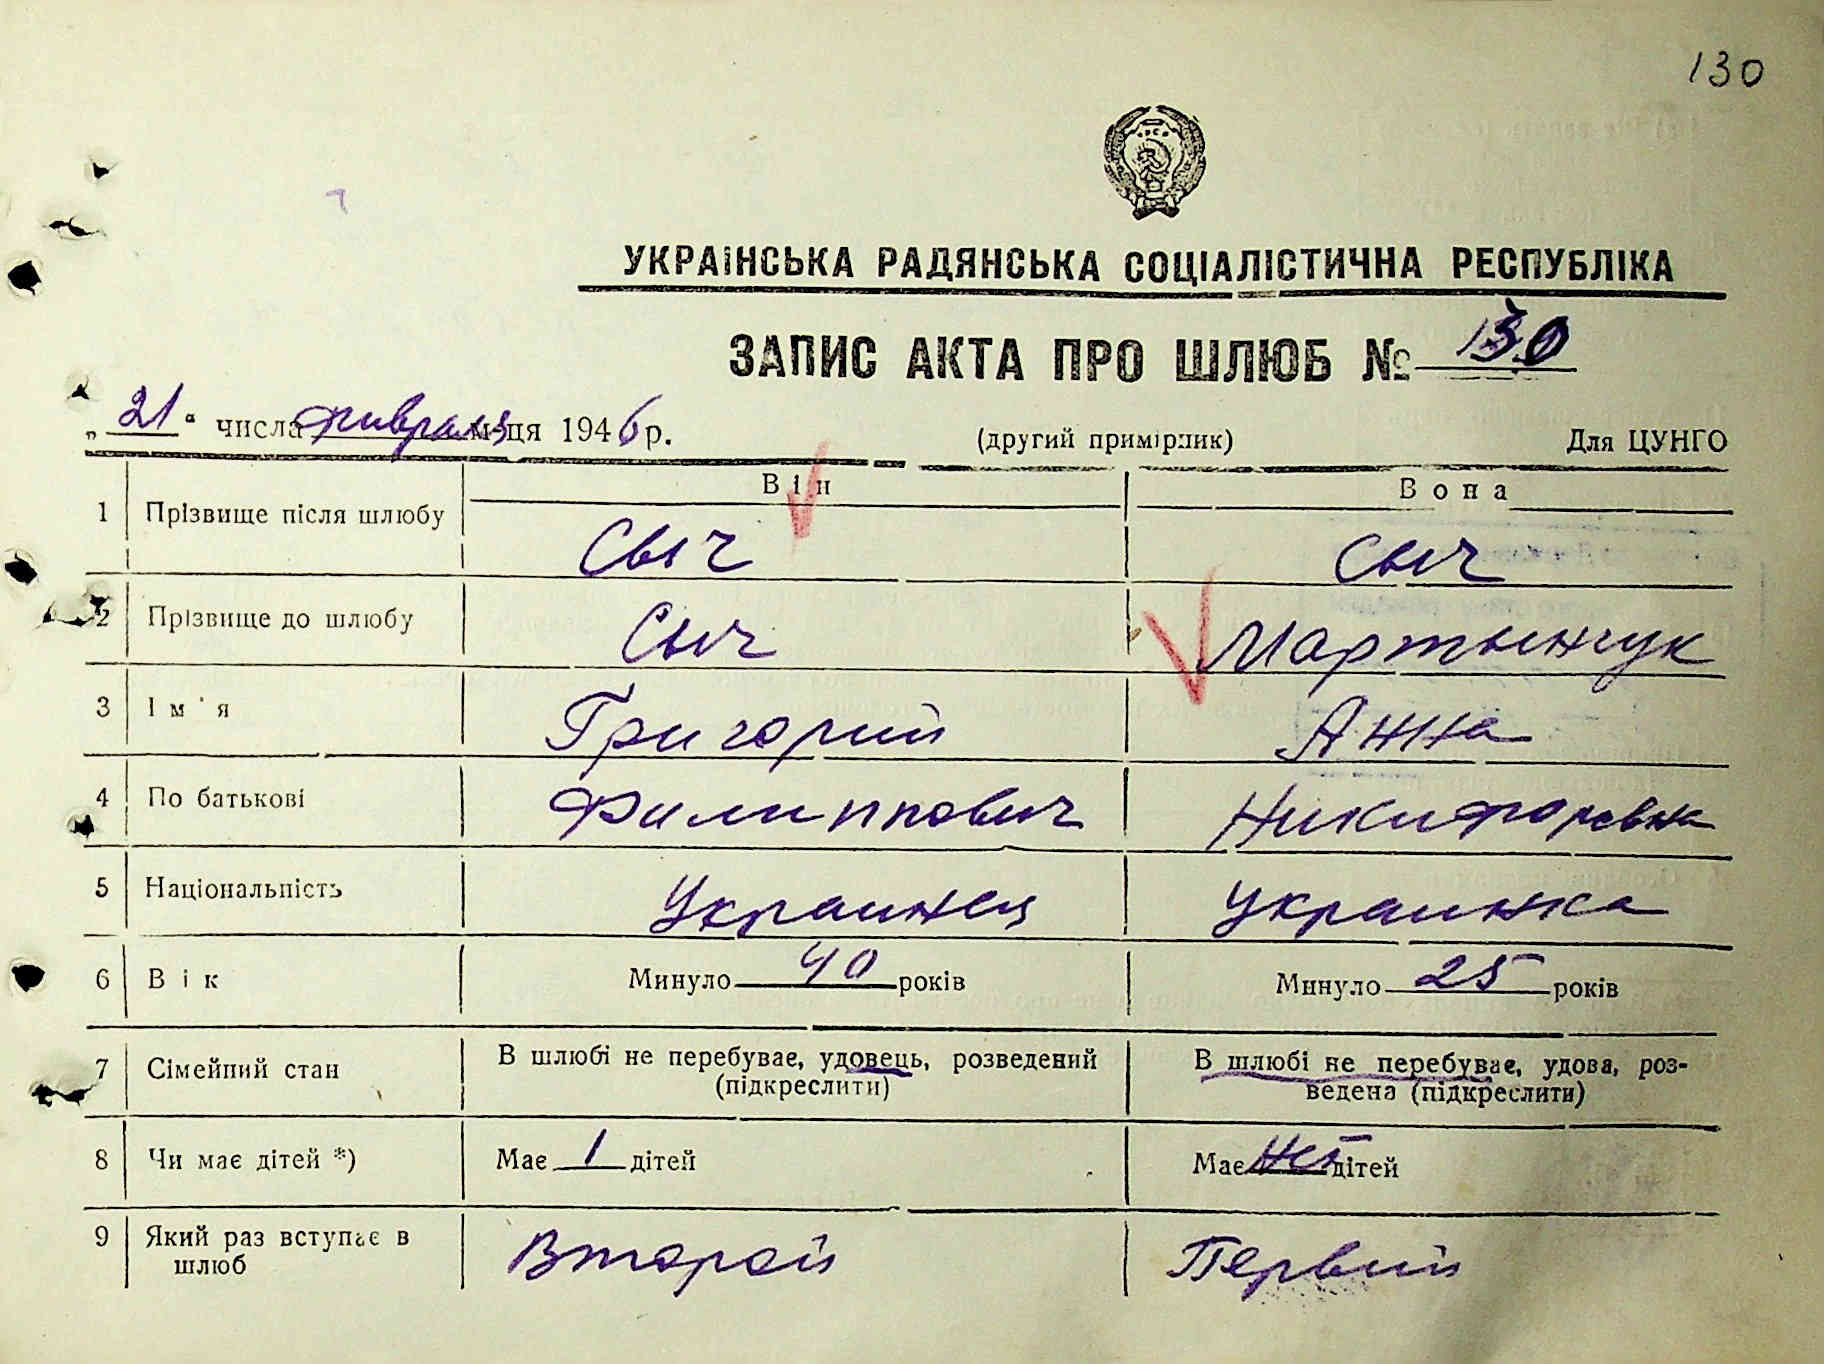 130
УКРАЇНСЬКА РАДЯНСЬКА СОЦІАЛІСТИЧНА РЕСПУБЛІКА
ЗАПИС АКТА ПРО ШЛЮБ № 130
„21“ числа февраля м-ця 1946 р. (другий примірник) Для ЦУНГО
Він Вона
1 Прізвище після шлюбу Сыч Сыч
2 Прізвище до шлюбу Сыч Мартынчук
3 Ім'я Григорий Анна
4 По батькові Филиппович Никифоровна
5 Національність Украинец Украинка
6 Вік Минуло 40 років Минуло 25 років
7 Сімейний стан В шлюбі не перебуває, удовець, розведений В шлюбі не перебуває, удова, роз-
(підкреслити) ведена (підкреслити)
8 Чи має дітей *) Має 1 дітей Має нет дітей
9 Який раз вступає в
шлюб Второй Первий